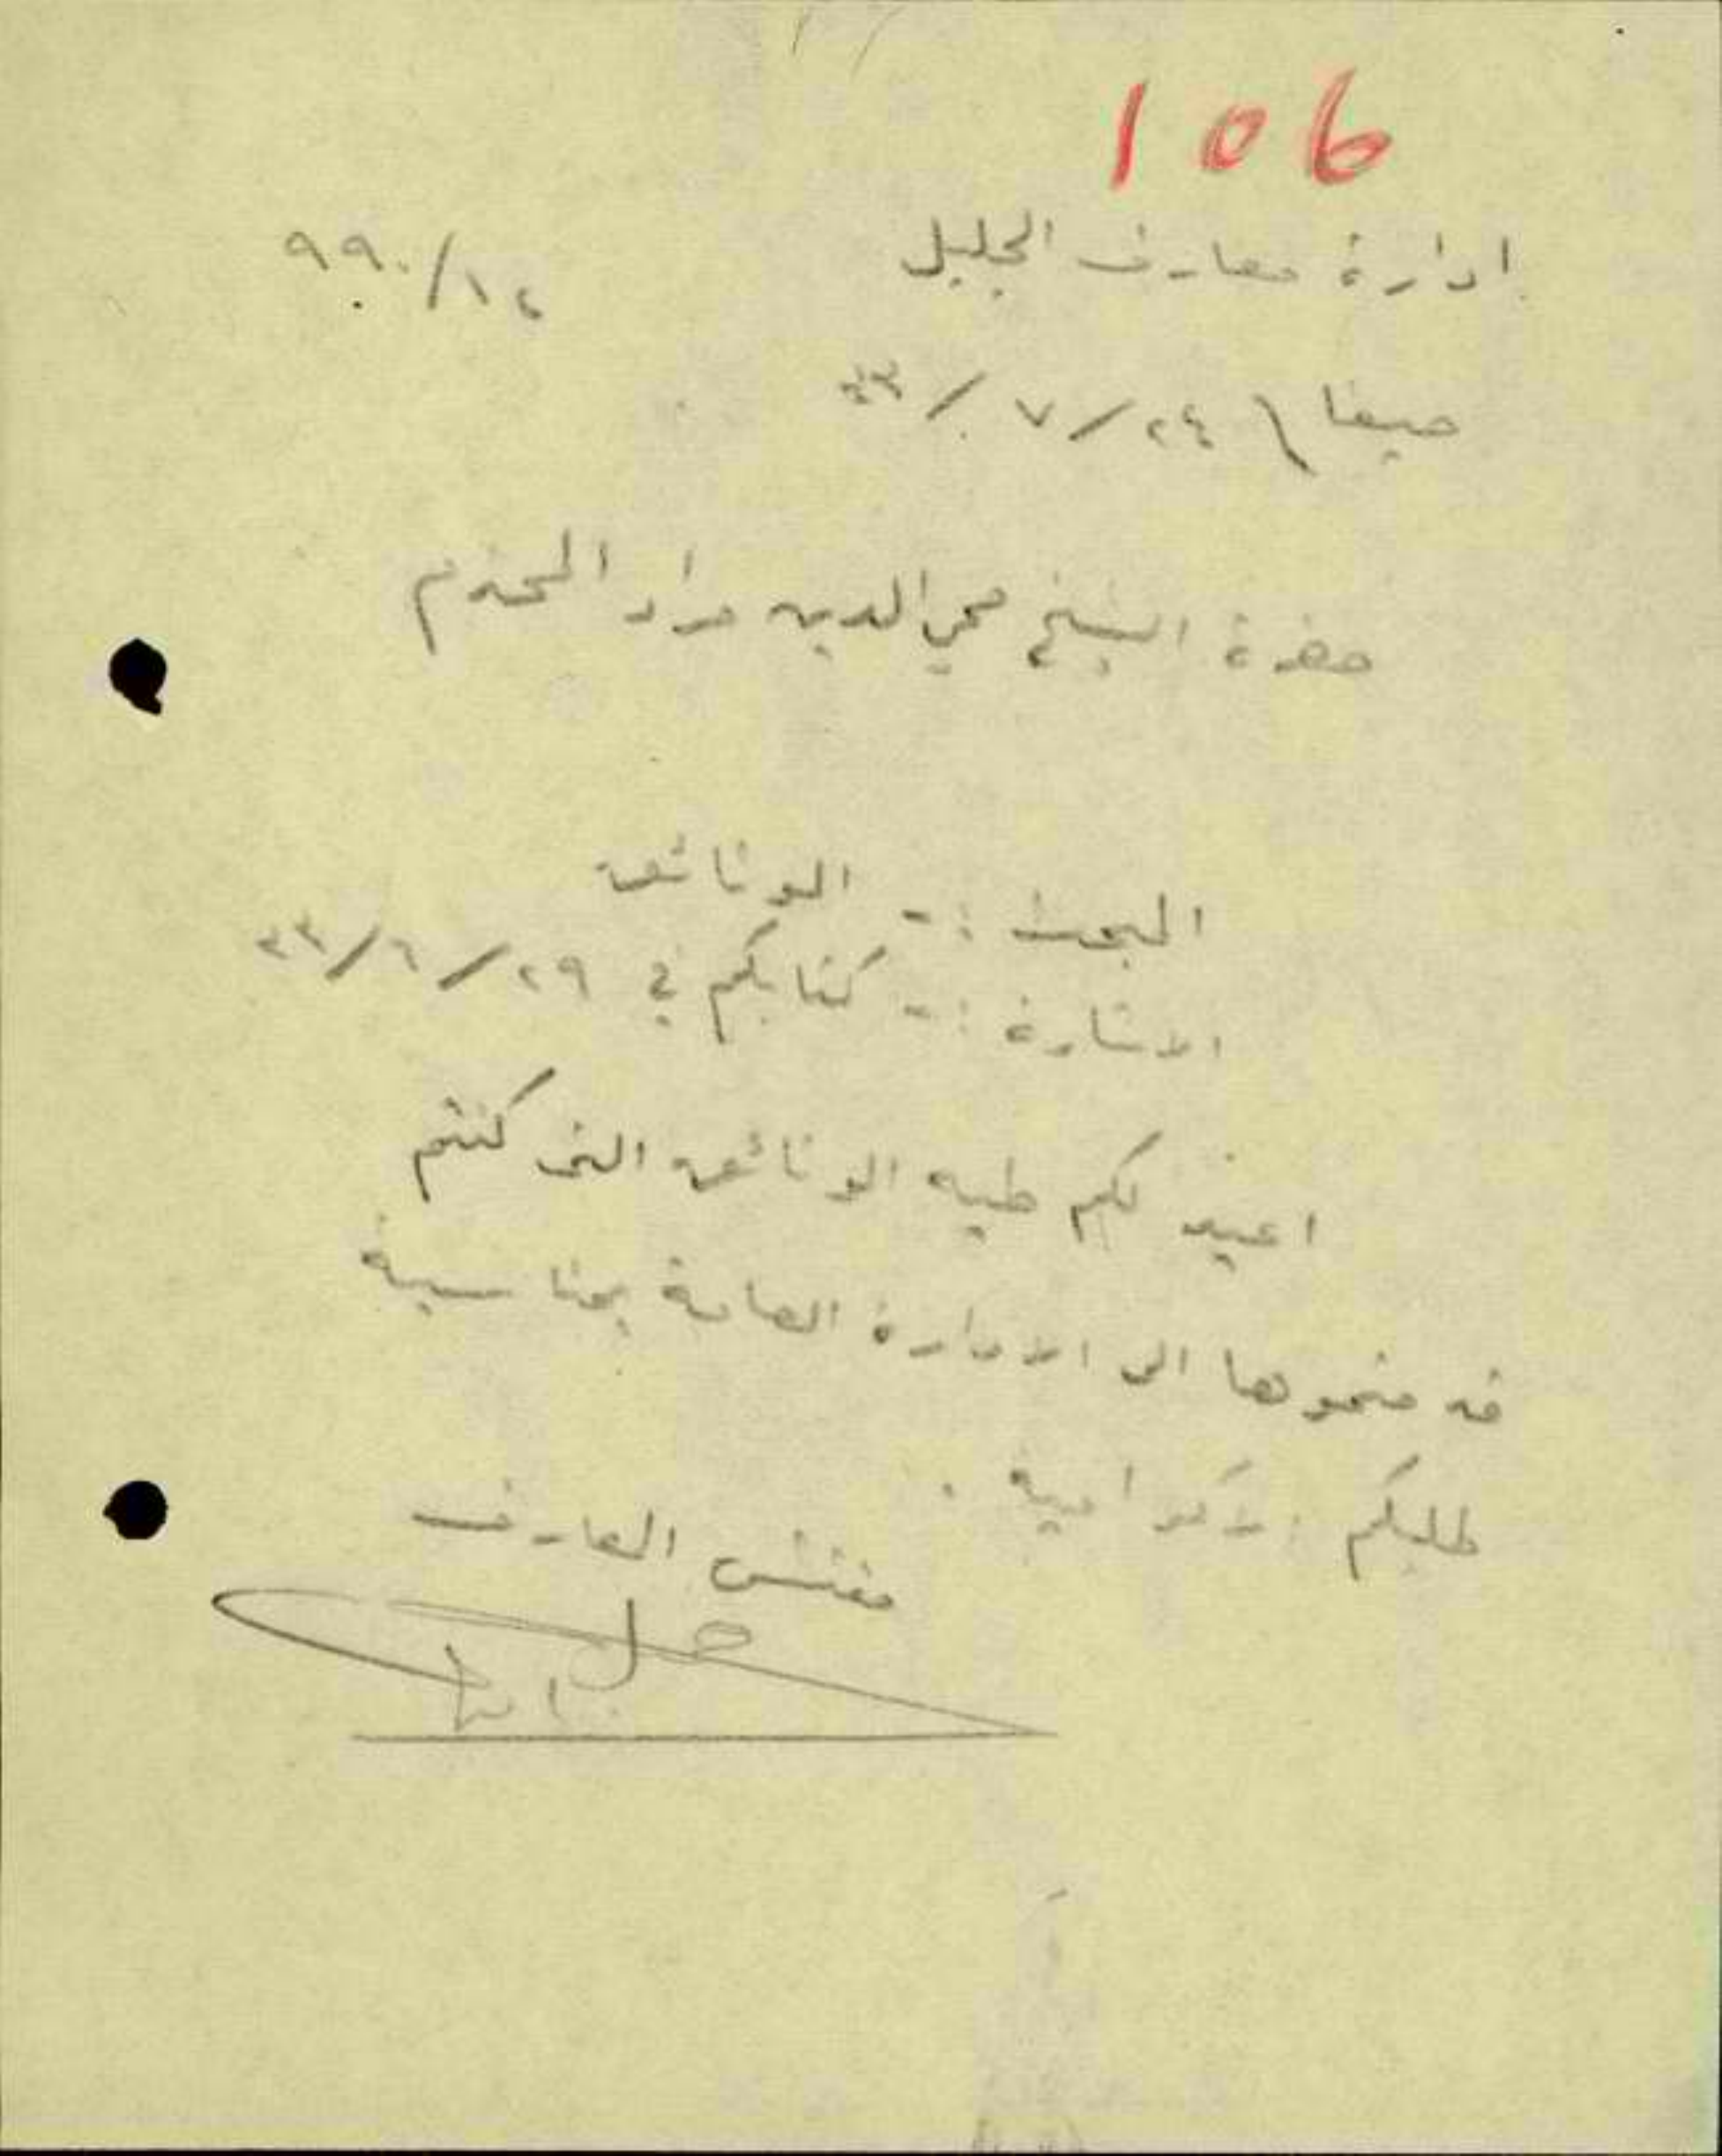 106
ادارة معارف الجليل
٩٩٠/١٤
حيفا \ ٢٤/٧/
حضرة الشيخ محي الدين مراد المحترم
البحث :- الوثائق
الاشارة :- كتابكم في ٢٩/٦/٢٣
اعيد لكم طيه الوثائق التى كنتم
قدمتموها الى الادارة العامة بمناسبة
طلبكم
مفتش المعارف